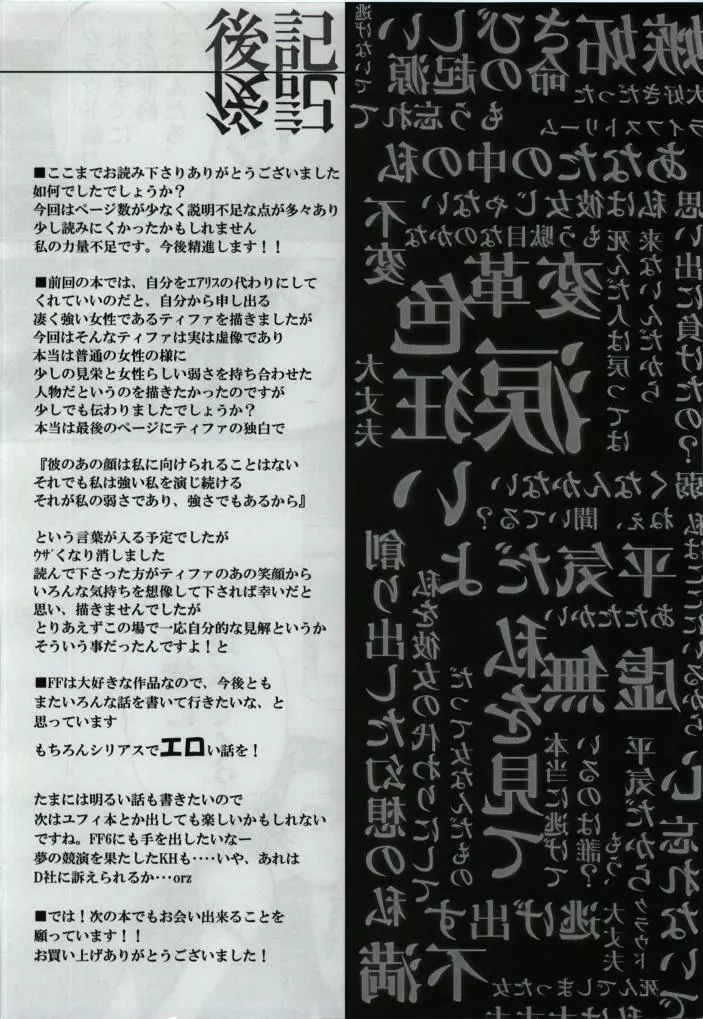 後記
■ここまでお読み下さりありがとうございました
如何でしたでしょうか？
今回はページ数が少なく説明不足な点が多々あり
少し読みにくかったかもしれません
私の力量不足です。今後精進します！！
■前回の本では、自分をエアリスの代わりにして
くれていいのだと、自分から申し出る
凄く強い女性であるティファを描きましたが
今回はそんなティファは実は虚像であり
本当は普通の女性の様に
少しの見栄と女性らしい弱さを持ち合わせた
人物だというのを描きたかったのですが
少しでも伝わりましたでしょうか？
本当は最後のページにティファの独白で
『彼のあの顔は私に向けられることはない
それでも私は強い私を演じ続ける
それが私の弱さであり、強さでもあるから』
という言葉が入る予定でしたが
ｳｻﾞくなり消しました
読んで下さった方がティファのあの笑顔から
いろんな気持ちを想像して下されば幸いだと
思い、描きませんでしたが
とりあえずこの場で一応自分的な見解というか
そういう事だったんですよ！と
■FFは大好きな作品なので、今後とも
またいろんな話を書いて行きたいな、と
思っています
もちろんシリアスでエロい話を！
たまには明るい話も書きたいので
次はユフィ本とか出しても楽しいかもしれない
ですね。FF6にも手を出したいなー
夢の競演を果たしたKHも‥‥いや、あれは
D社に訴えられるか･･･orz
■では！次の本でもお会い出来ることを
願っています！！
お買い上げありがとうございました！
嫉妬
さびしい
逃げないで
命の起源
大好きだった
もう忘れて
ライフストリーム
あなたの中の私
思い出に負けたの？
私は彼女じゃない
もう駄目なのかな
不変
来ないんだから
死んだ人は戻っては
変革
色
涙
狂
いよ
大丈夫
弱くなんかない
ねぇ、聞いてる？
私はここにいるから
平気だ
あたたかい
創り出した幻想の私
私を彼女の代わりにして
だって女なんだもの
私を見て
虚無
心
忘れないで
平気だから
もう、
いるのは誰？
本当に逃げて
クラウド
大丈夫
逃げ出す
不満
死んでしまった女